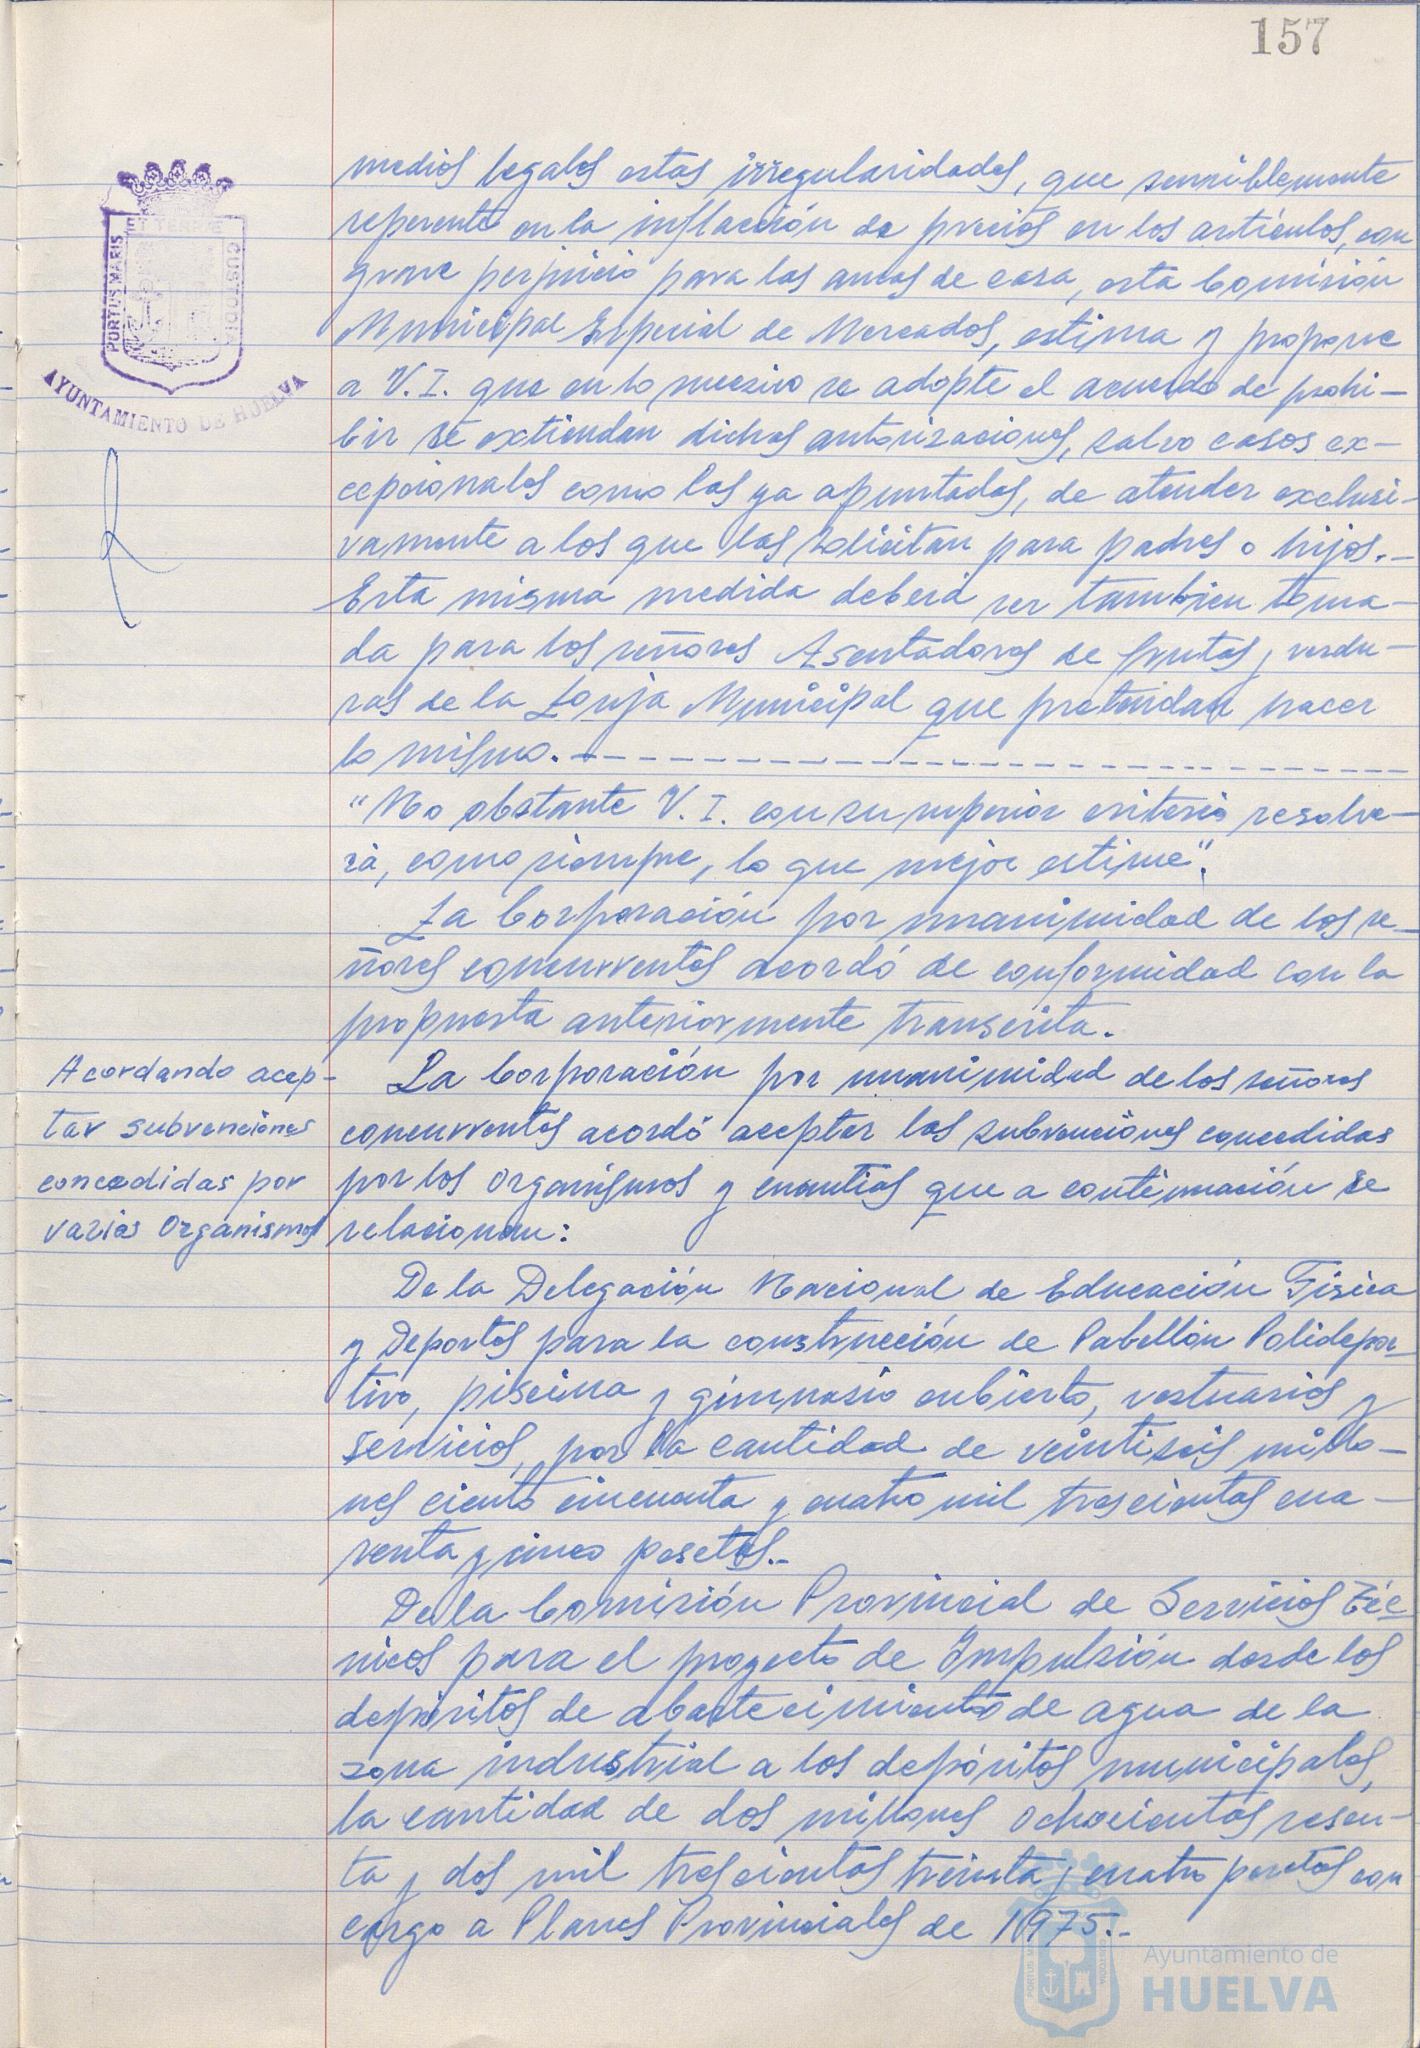 157
PORTUS MARIS ET TERRE CUSTODIA
AYUNTAMIENTO DE HUELVA
medios legales estas irregularidades, que sensiblemente
repercute en la inflacción de precios en los artículos, con
grave perjuicio para las amas de casa, esta Comisión
Municipal Especial de Mercados, estima y propone
a V.I. que en lo sucesivo se adopte el acuerdo de prohi-
bir se extiendan dichas autorizaciones, salvo casos ex-
cepcionales como los ya apuntados, de atender exclusi-
vamente a los que las solicitan para padres o hijos.-
Esta misma medida deberá ser tambien toma-
da para los señores Asentadores de frutas y verdu-
ras de la Lonja Municipal que pretendan hacer
lo mismo.-
"No obstante V.I. con su superior criterio resolve-
rá, como siempre, lo que mejor estime".
La Corporación por unanimidad de los se-
ñores concurrentes acordó de conformidad con la
propuesta anteriormente transcrita.
Acordando acep-
tar subvenciones
concedidas por
varios Organismos
La Corporación por unanimidad de los señores
concurrentes acordó aceptar las subvenciones concedidas
por los Organismos y cuantias que a continuación se
relacionan:
De la Delegación Nacional de Educación Fisica
y Deportes para la construcción de Pabellón Polidepor-
tivo, piscina y gimnasio cubierto, vestuarios y
servicios, por la cantidad de veintiseis millo-
nes ciento cincuenta y cuatro mil trescientas cua-
renta y cinco pesetas.-
De la Comisión Provincial de Servicios Téc-
nicos para el proyecto de Impulsión desde los
depósitos de abastecimiento de agua de la
zona industrial a los depósitos municipales,
la cantidad de dos millones ochocientas sesen-
ta y dos mil trescientas treinta y cuatro pesetas con
cargo a Planes Provinciales de 1975.-
Ayuntamiento de
HUELVA